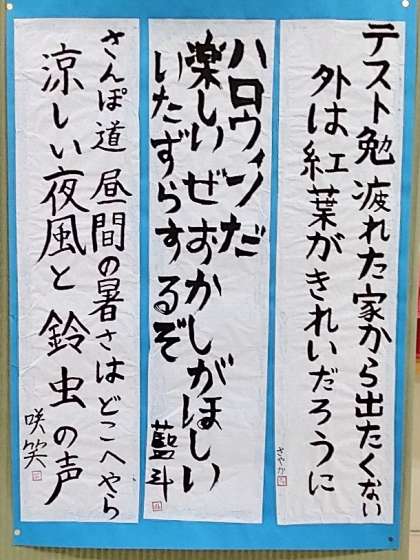 テスト勉 疲れた家から出たくない
外は紅葉がきれいだろうに
さやか
ハロウィンだ
楽しいぜおかしがほしい
いたずらするぞ
藍斗
さんぽ道 昼間の暑さはどこへやら
涼しい夜風と 鈴虫の声
咲笑